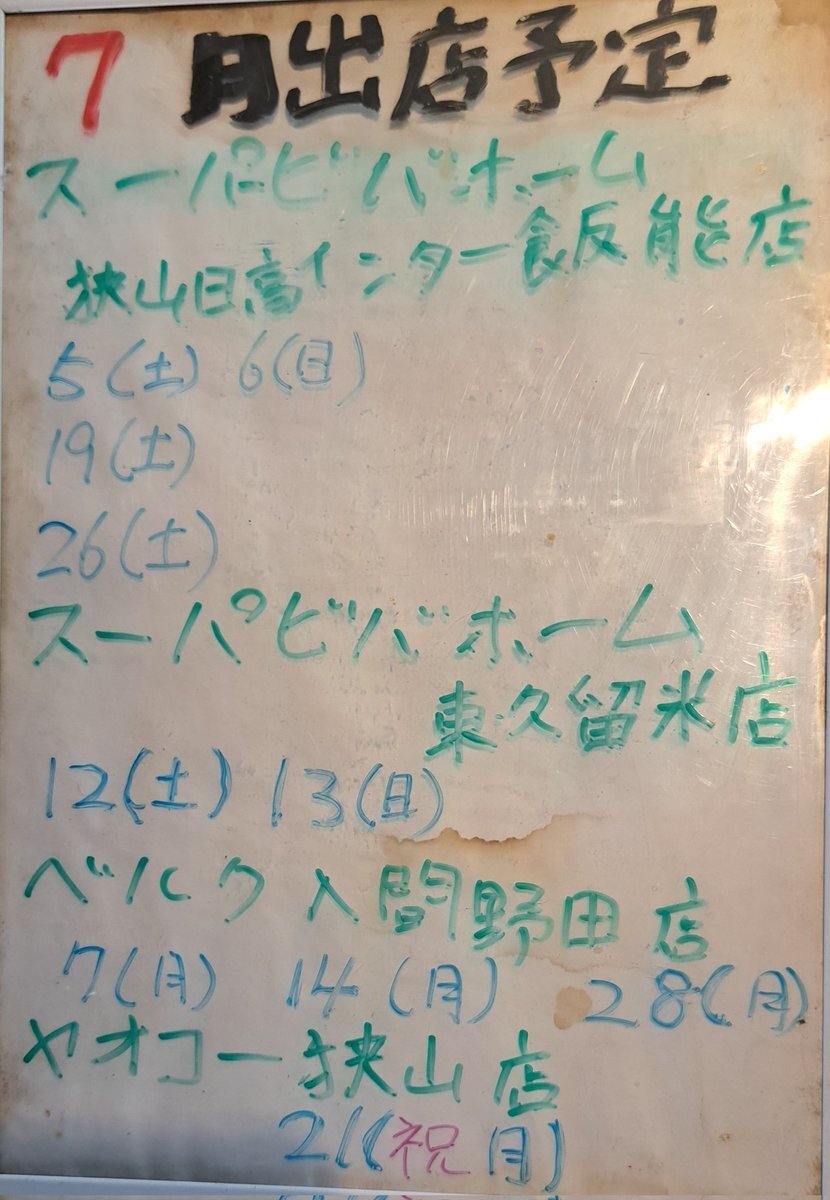 7月出店予定
スーパービバホーム
狭山日高インター飯能店
5(土) 6(日)
19(土)
26(土)
スーパビバホーム
東久留米店
12(土) 13(日)
ベルク入間野田店
7(月) 14(月) 28(月)
ヤオコー狭山店
21(祝月)